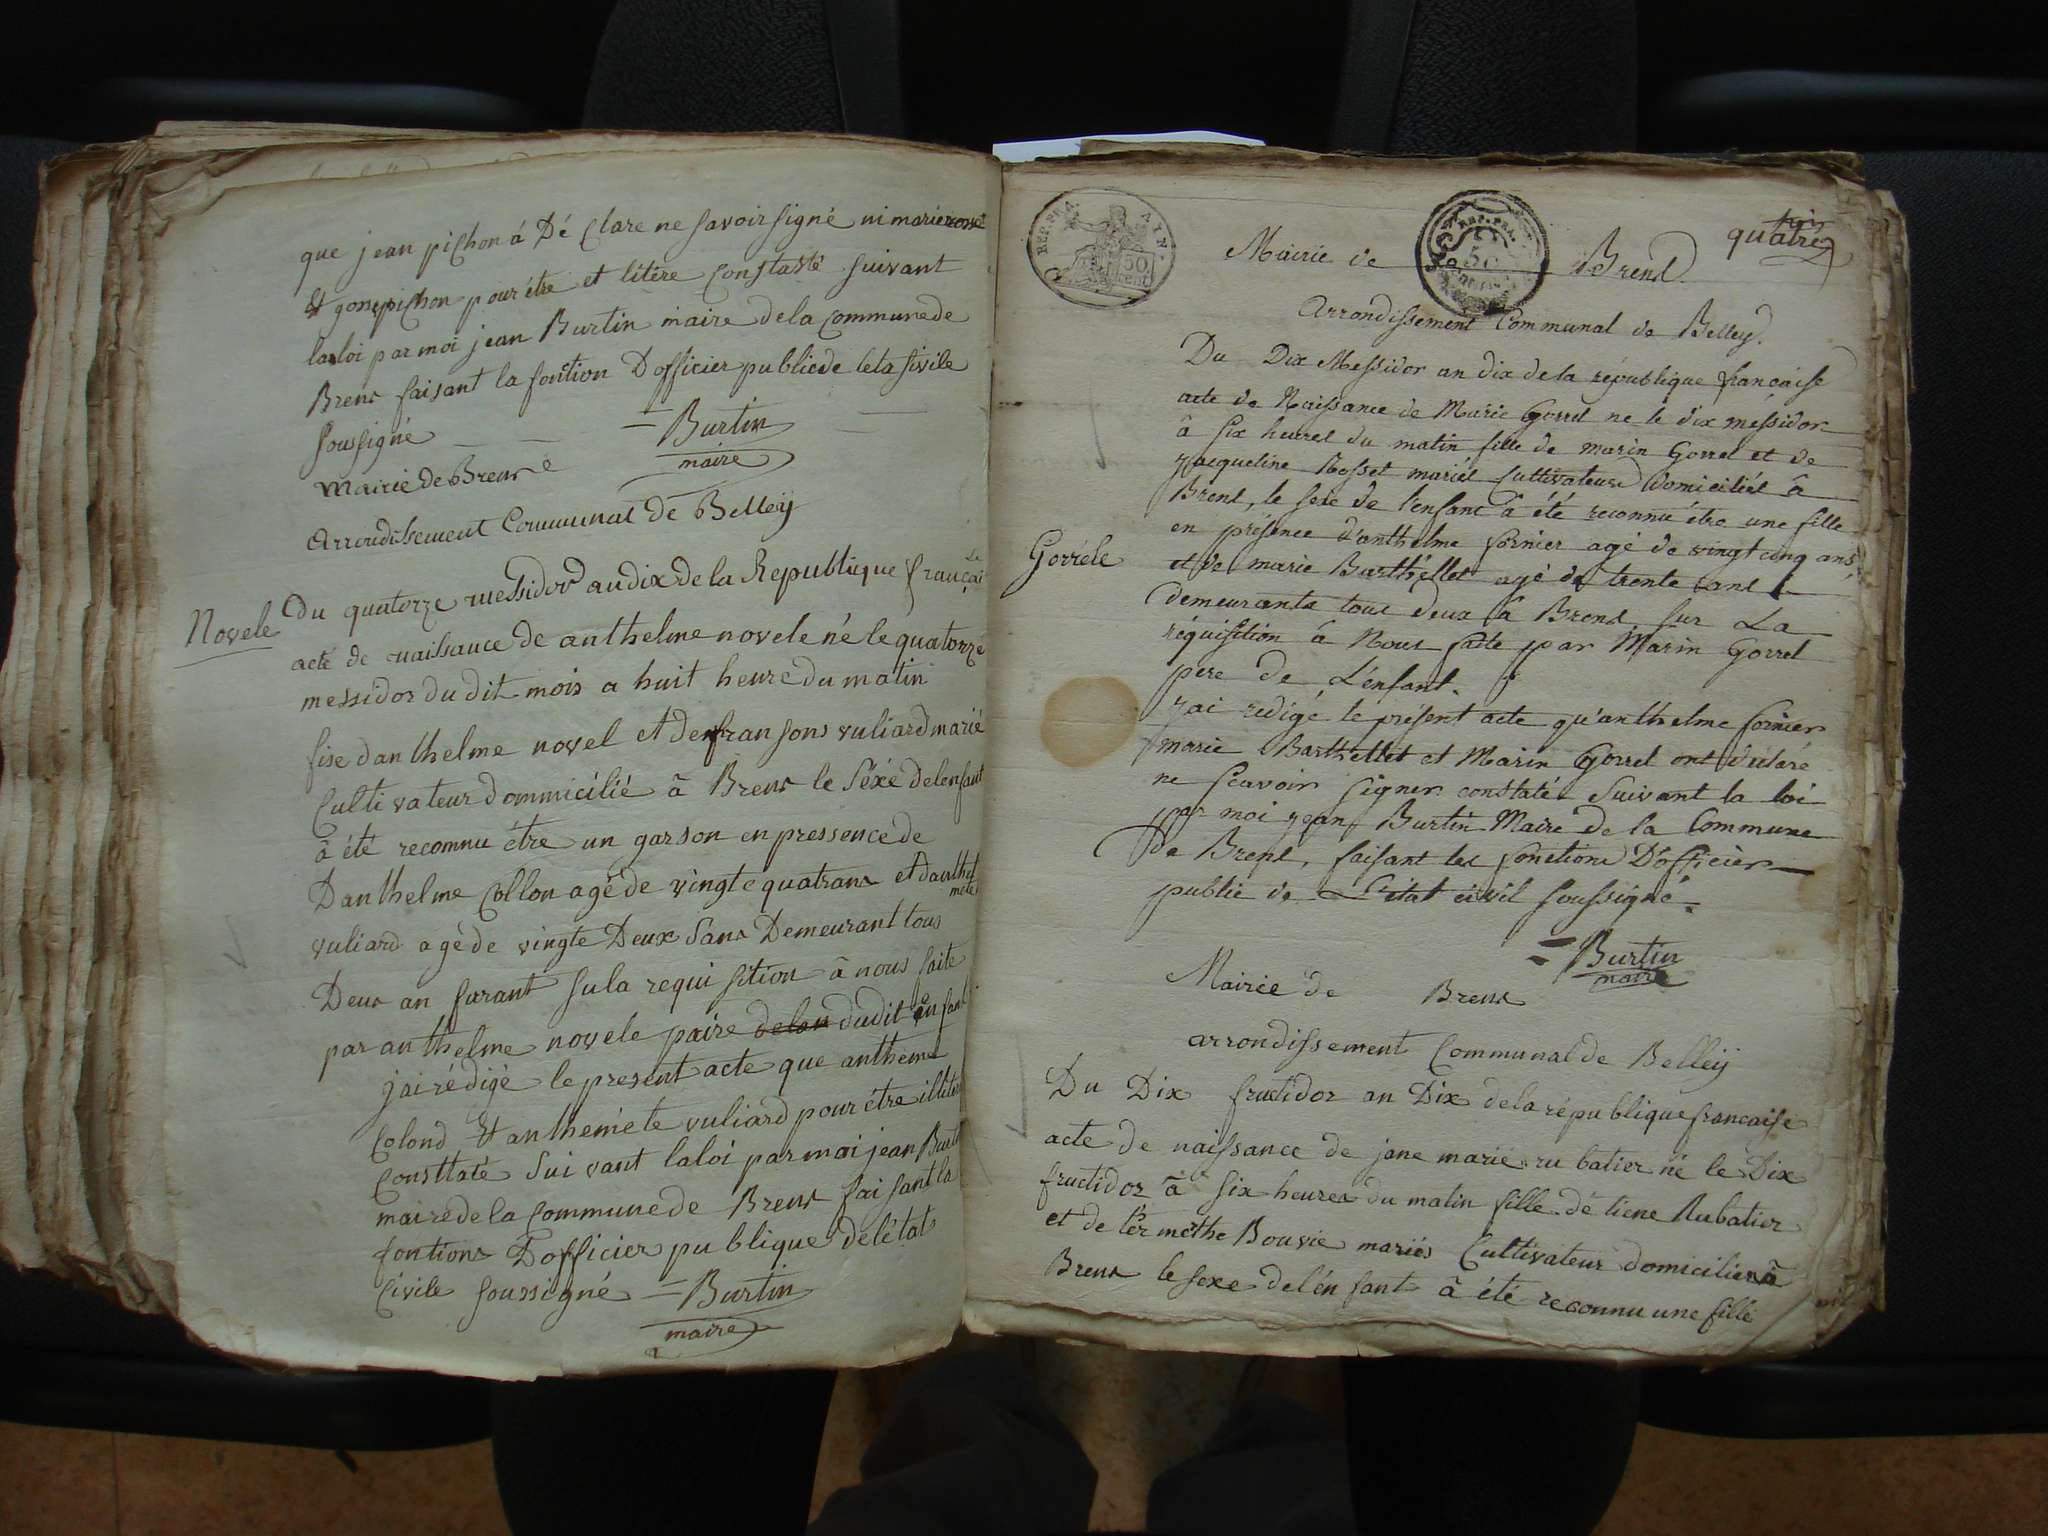 que jean pichon á Dé Clare ne savoir signé ni marie
Et pichon pour étre et litére Constaté suivant
laloi par moi jean Burtin maire dela Commune de
Brens faisant la fontion D officier publicde leta sivile
soussigné = Burtin
maire
Mairie de Brens
Arrondissement Communal de Belley
Novele
Du quatorze messidor an dix de la Republique françai
se
acté de naissance de anthelme novele né le quatorze
messidor du dit mois a huit heure du matin
fise danthelme novel et de fransons vuliard marié
Cultivateur dommicilié á Brens le Séxé delenfant
á été reconnu étre un garson en pressence de
Danthelme Collon agé de vingte quatrans et danthel
mete
vuliard agé de vingte Deux Sans Demeurant tous
Deus an surant sula requisition á nous faite
par anthelme novele paire delan dudit enfant
jai rédigé le present acte que antheme
Colond Et antheméte vuliard pour étre illiter
Consttaté Suivant laloi par moi jean Burti
maire de la Commune de Brens faisant la
fontions D officier publique delétat
Civile soussigné = Burtin
maire
REP. FRA. AYN.
50
REP. FRA.
50
quatre
Mairie de Brens
Arrondissement Communal de Belley.
Du Dix Messidor an dix de la république française
acte de Naissance de Marie Gorrel ne le dix méssidor
à six heures du matin fille de marin Gorrel et de
Jacqueline Rosset mariés Cultivateurs domiciliés à
Brens, le sexe de l'enfant à été reconnu être une fille
en présence d'anthelme fornier agé de vingt cinq ans
Gorréle
et de marie Barthellet agé de trente ans
demeurants tous deux à Brens, sur La
réquisition à Nous faite par Marin Gorrel
pere de L'enfant.
j'ai redigé le présent acte qu'anthelme fornier
marie Barthellet et Marin Gorrel ont déclaré
ne scavoir signer constaté Suivant la loi
par moi jean Burtin Maire de la Commune
de Brens, faisant les fonctions D'officier
public de L'état civil soussigné.
= Burtin
maire
Mairie de Brens
arrondissement Communal de Belleÿ
Du Dix fructidor an Dix dela république francaise
acte de naissance de jane marie rubatier né le Dix
fructidor à six heures du matin fille dé tiene Rubatier
et de Bouvie mariés Cultivateur domiciliés à
Brens le sexe delén fant à été reconnu une fille